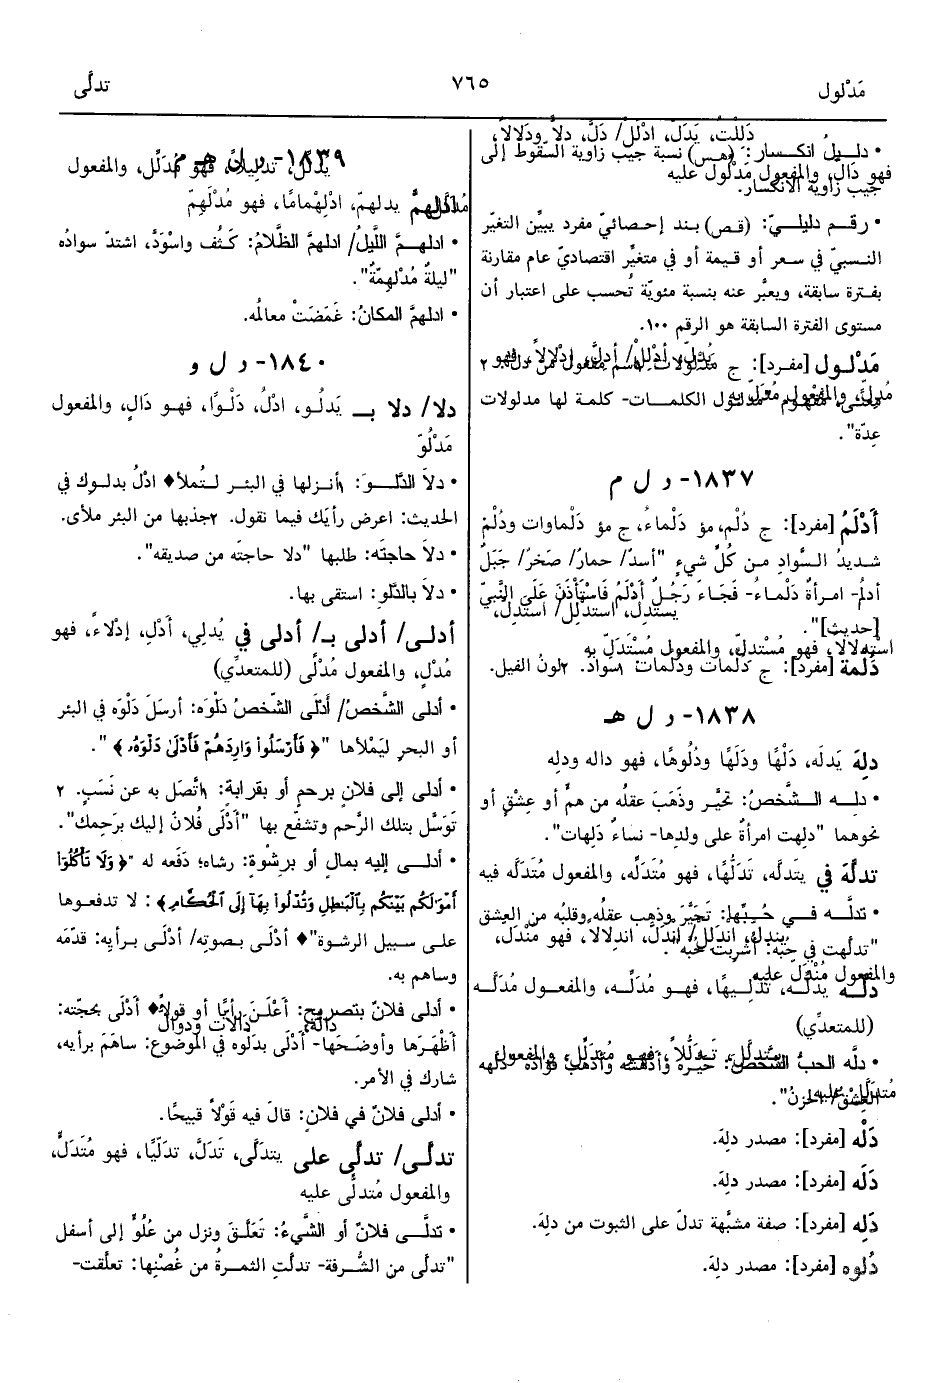 مَدْلول
٧٦٥
تدلَّى
• دلـيل انكـسار: (هـس) نسبة جيب زاوية السّقوط إلى
جيب زاوية الانكسار.
• رقـم دليليّ: (قـص) بند إحصائيّ مفرد يبيِّن التغيّر
النسبيّ في سعر أو قيمة أو في متغيِّر اقتصاديّ عام مقارنة
بفترة سابقة، ويعبَّر عنه بنسبة مئويّة تُحسب على اعتبار أن
مستوى الفترة السابقة هو الرقم ١٠٠.
مَدْلـول [مفرد]: ج مدلولات
مدلول الكلمـات- كلمة لها مدلولات
عِدّة".
١٨٣٧- د ل م
أَدْلَمُ [مفرد]: ج دُلْم، مؤ دَلْماءُ، ج مؤ دَلْماوات ودُلْمٌ
شديدُ السَّوادِ مـن كُلِّ شيءٍ "أسدٌ/ حمارٌ/ صَخرٌ/ جَبَلٌ
أدلمُ- امرأةٌ دَلْماءُ- فَجَاءَ رَجُلٌ أَدْلَمُ فَاسْتَأْذَنَ عَلَى النَّبِيِّ
[حديث]".
دُلمة [مفرد]: ج دُلُمات ودُلْمات ١سواد. ٢لونُ الفيل.
١٨٣٨- د ل هـ
دلِهَ يَدلَه، دَلْهًا ودَلَهًا ودُلُوهًا، فهو داله ودلِه
• دلـه الـشَّخصُ: تحيَّر وذَهَبَ عقلُه من همٍّ أو عِشْقٍ أو
نحوهما "دلِهت امرأةٌ على ولدِها- نساءٌ دَلِهات".
تدلَّهَ في يتدلَّه، تدَلُّهًا، فهو مُتَدلِّه، والمفعول مُتَدلَّه فيه
• تدلَّـه فـي حُـبِّها: تَحَيَّرَ وذهب عقلُه وقلبُه من العِشق
"تدلَّهت في حبّه:
دلَّـهَ يدلِّـه، تدْلـيهًا، فهـو مُدلِّـه، والمفعـول مُدلَّـه
(للمتعدِّي)
• دلَّه الحبُّ الشخصَ: حيَّره وأدهشه وأذهب فؤاده "دلَّهه
العِشْقُ/ الحزنُ".
دَلْه [مفرد]: مصدر دلِهَ.
دَلَه [مفرد]: مصدر دلِهَ.
دَلِه [مفرد]: صفة مشبَّهة تدلّ على الثبوت من دلِهَ.
دُلُوه [مفرد]: مصدر دلِهَ.
١٨٣٩-
ادلهمَّ يدلهمّ، ادْلِهْمامًا، فهو مُدْلَهِمّ
• ادلهـمَّ اللَّيلُ/ ادلهمَّ الظَّلامُ: كَثُف واسْوَدَّ، اشتدّ سوادُه
"ليلةٌ مُدْلهمّةٌ".
• ادلهمَّ المكانُ: غَمَضَتْ معالمُه.
١٨٤٠- د ل و
دلا/ دلا بـ يَدلُـو، ادْلُ، دَلْـوًا، فهـو دَالٍ، والمفعول
مَدْلُوّ
• دلاَ الدَّلْـوَ: ١أنـزلها في البئـر لـتُملأ♦ ادْلُ بدلـوك في
الحديث: اعرض رأيَك فيما نقول. ٢جذبها من البئر ملأى.
• دلاَ حاجتَه: طلبها "دلا حاجتَه من صديقه".
• دلاَ بالدَّلْوِ: استقى بها.
أدلـى/ أدلى بـ/ أدلى في يُدلِي، أَدْلِ، إِدْلاءً، فهو
مُدْلٍ، والمفعول مُدْلًى (للمتعدِّي)
• أدلى الشَّخصُ/ أَدْلَى الشّخصُ دَلْوَه: أرسلَ دَلْوَه في البئر
أو البحرِ ليَمْلأها "﴿ فَأَرْسَلُوا وَارِدَهُمْ فَأَدْلَى دَلْوَهُ ﴾ ".
• أدلى إلى فلانٍ برحمٍ أو بقرابةٍ: ١اتَّصل به عن نَسَبٍ. ٢
تَوَسَّل بتلك الرَّحم وتشفّع بها "أَدْلَى فُلانٌ إليك برَحِمِك".
• أدلـى إليه بمال أو برشْوةٍ: رشاه؛ دَفَعه له "﴿ وَلاَ تَأْكُلُوا
أَمْوَالَكُم بَيْنَكُم بِالْبَاطِلِ وَتُدْلُوا بِهَا إِلَى الْحُكَّامِ ﴾: لا تدفعوها
علـى سبيل الرشوة"♦ أَدْلَى بـصوته/ أدْلَـى برأيِه: قدّمه
وساهم به.
• أدلى فلانٌ بتصريحٍ: أَعْلَـنَ رأيًا أو قولاً♦ أَدْلَى بحجّته:
أَظْهَـرَها وأوضـحَها- أَدْلَى بدَلْوِه في الموضوع: ساهَمَ برأيِه،
شارك في الأمر.
• أدلى فلانٌ في فلانٍ: قالَ فيه قَوْلاً قبيحًا.
تدلَّـى/ تدلَّى على يتدلَّى، تَدَلَّ، تدَلّيًا، فهو مُتَدلٍّ،
والمفعول مُتدلًّى عليه
• تدلَّـى فلانٌ أو الشّيءُ: تَعَلَّـقَ ونزل من عُلُوٍّ إلى أسفل
"تدلَّى من الشُّرفة- تدلّتِ الثمرةُ من غُصْنِها: تعلَّقت-